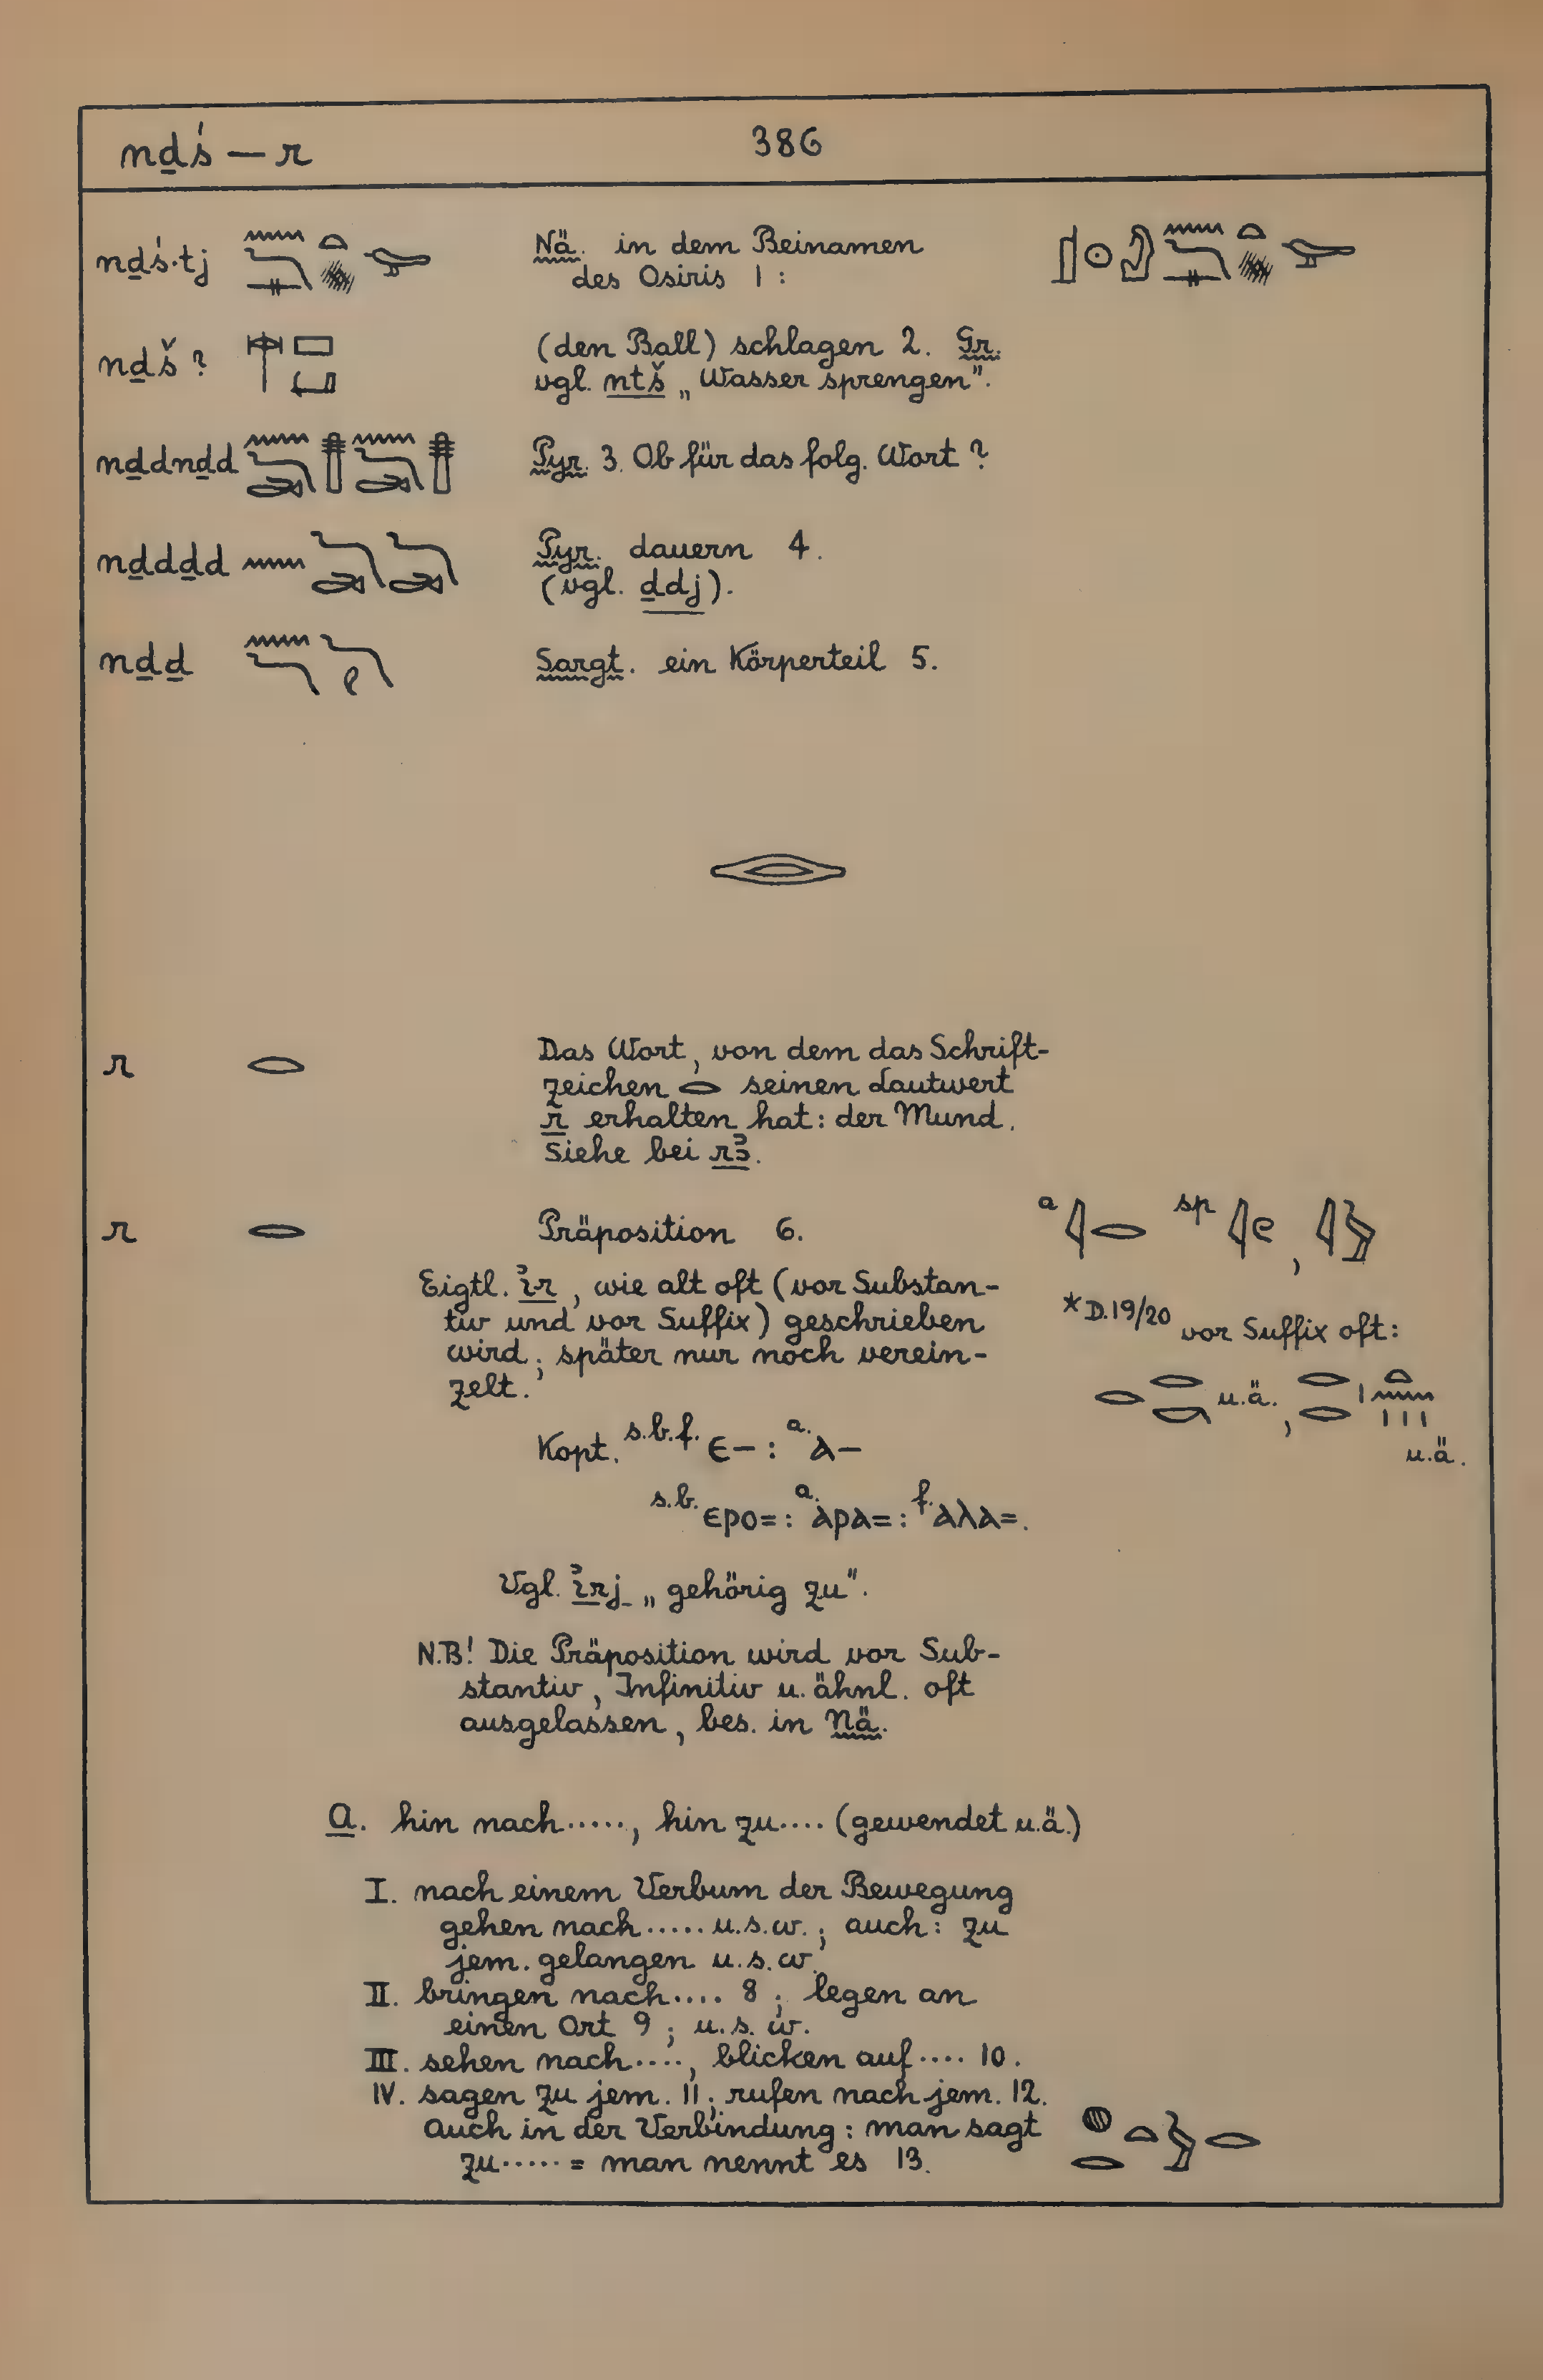 nḏś — r
386
nḏś·tj Nä. in dem Beinamen
des Osiris 1 :
nḏš ? (den Ball) schlagen 2. Gr.
vgl. ntš „Wasser sprengen".
nḏdnḏd Pyr. 3. Ob für das folg. Wort ?
nḏdḏd Pyr. dauern 4.
(vgl. ḏdj).
nḏḏ Sargt. ein Körperteil 5.
r 𓂋 Das Wort, von dem das Schrift-
zeichen 𓂋 seinen Lautwert
r erhalten hat: der Mund.
Siehe bei rꜣ.
r 𓂋 Präposition 6.
a 𓇋𓂋 sp 𓇋𓏲, 𓇋𓅱
Eigtl. ı͗r, wie alt oft (vor Substan-
tiv und vor Suffix) geschrieben
wird; später nur noch verein-
zelt.
*D.19/20 vor Suffix oft:
𓂋𓂋𓎡 u.ä., 𓂋𓂋𓏤𓏏𓈖𓏥
u.ä.
Kopt. s.b.f. ⲉ– : a. ⲁ–
s.b. ⲉⲣⲟ= : a. ⲁⲣⲁ= : f. ⲁⲗⲁ=.
Vgl. ı͗rj „gehörig zu".
N.B! Die Präposition wird vor Sub-
stantiv, Infinitiv u. ähnl. oft
ausgelassen, bes. in Nä.
A. hin nach ....., hin zu .... (gewendet u.ä.)
I. nach einem Verbum der Bewegung
gehen nach ..... u.s.w.; auch: zu
jem. gelangen u.s.w.
II. bringen nach .... 8 ; legen an
einen Ort 9 ; u.s.w.
III. sehen nach ...., blicken auf .... 10.
IV. sagen zu jem. 11; rufen nach jem. 12.
auch in der Verbindung: man sagt
zu ..... = man nennt es 13. 𓐍𓂋𓏏𓅱𓂋